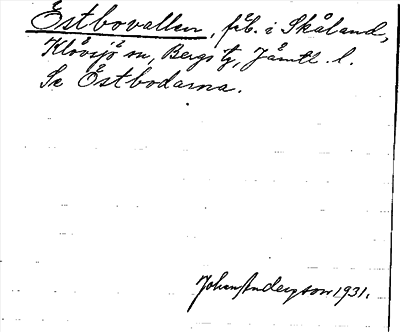 Östbovallen, fäb. i Skåland,
Klövsjö sn, Bergs tg, Jämtl. l.
Se Östbodarna.
Johan Anderson 1931.